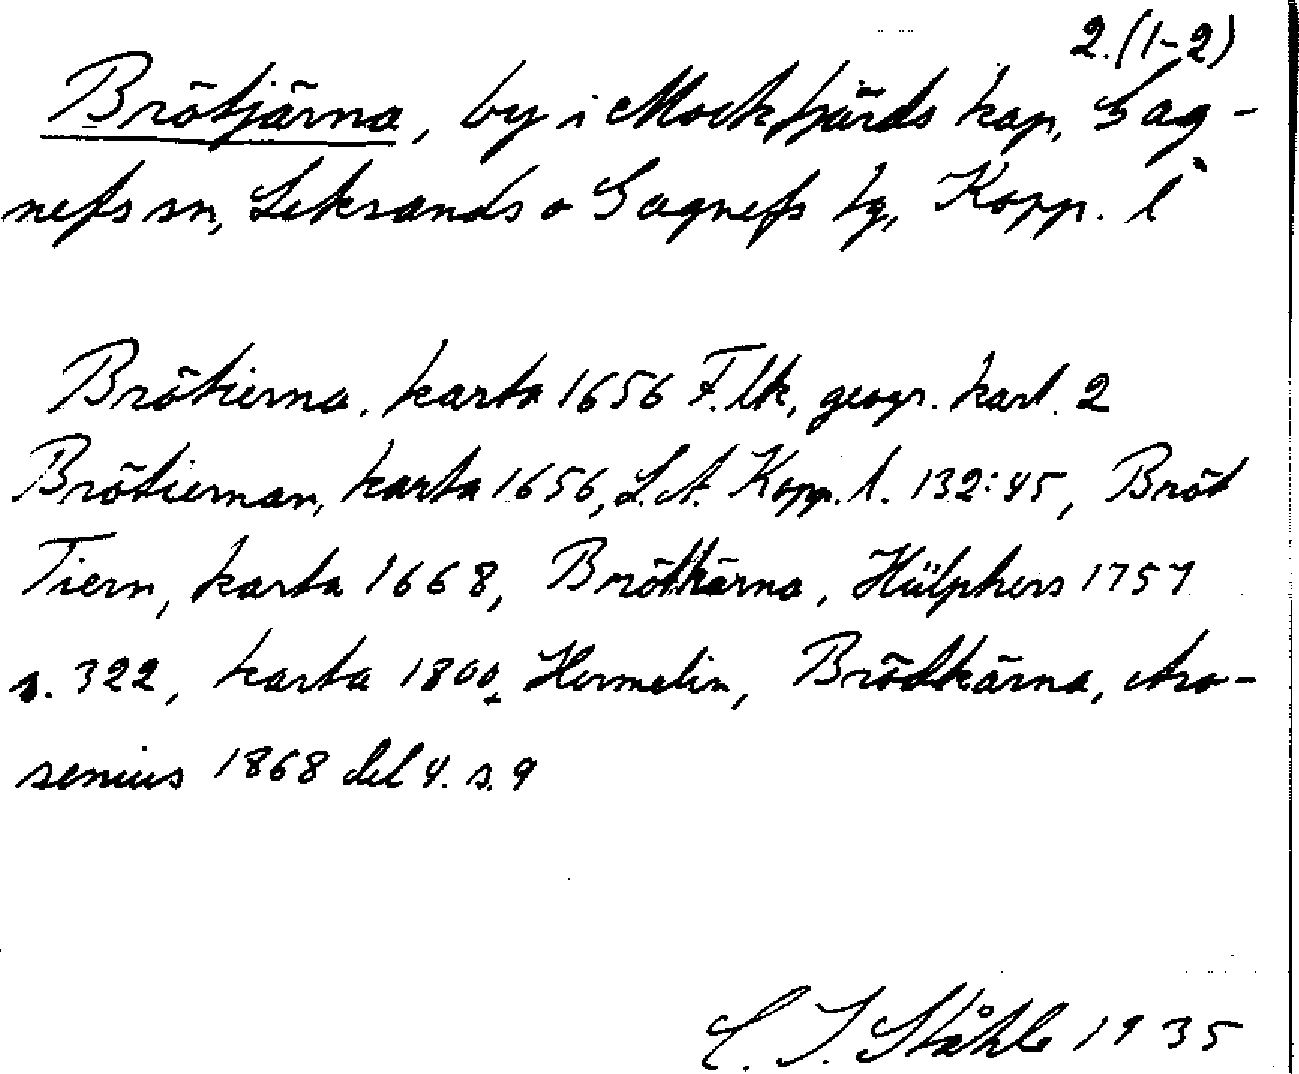 2.(1-2)
Brötjärna, by i Mockfjärds kap, Gag-
nefs sn, Leksands o Gagnefs tg, Kopp. l
Brötierna, karta 1656 F.lk, geogr. kart. 2
Brötiernan, karta 1656, L.A. Kopp. l. 132:45, Bröt
Tiern, karta 1668, Brötkärna, Hülphers 1757
s. 322, karta 1800, Hermelin, Brödkärna, Aro-
senius 1868 del 4. s. 9
C. I. Ståhle 1935